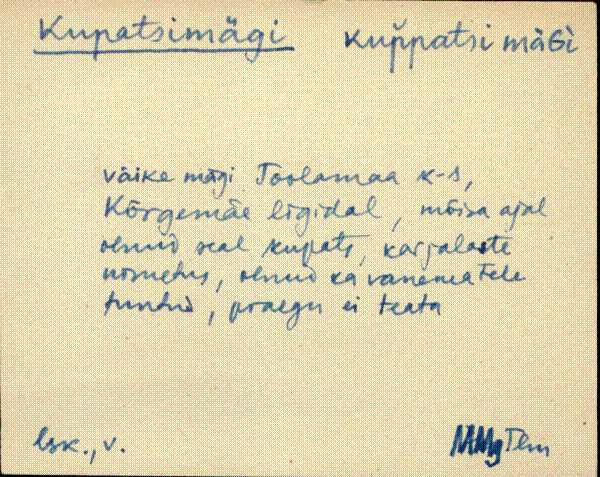 Kupatsimägi kup̆patsi mäGì
väike mägi Toolamaa k-s,
Kõrgemäe ligidal, mõisa ajal
olnud seal kupats, karjalaste
nimetus, olnud ka vanematele
tuntud, praegu ei teata
lsk., v. MMg Tlm